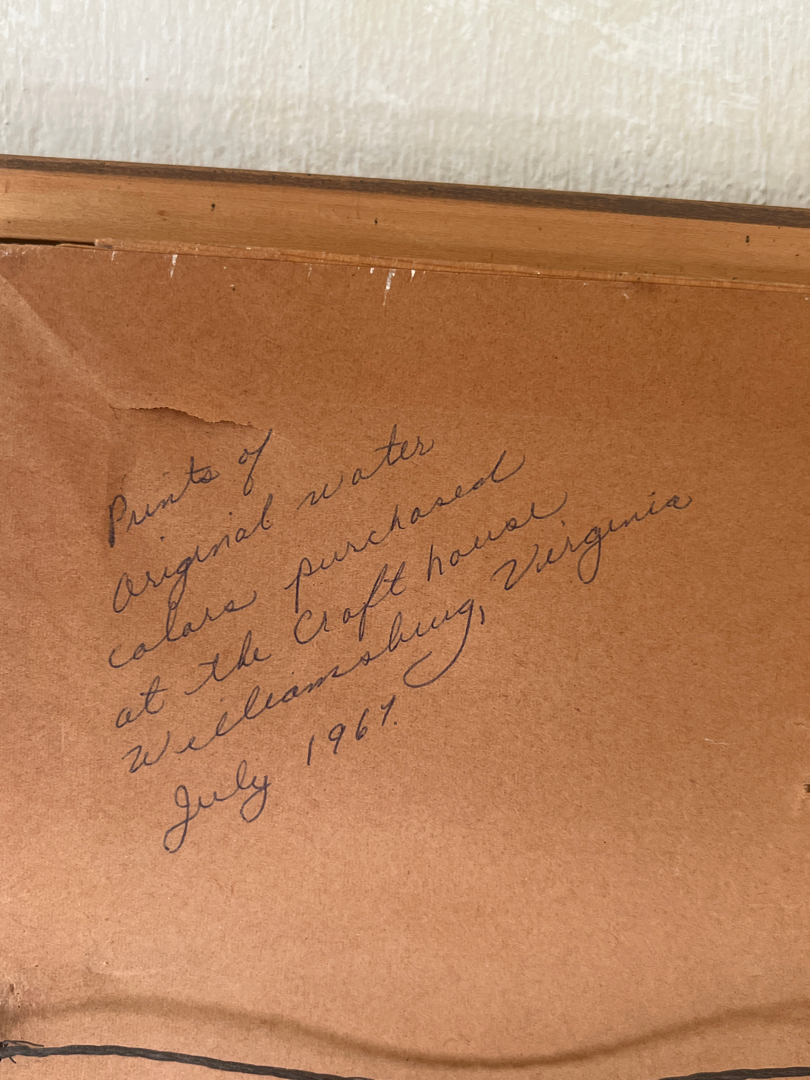 Prints of
Original water
colors purchased
at the Craft house
Williamsburg, Virginia
July 1967.